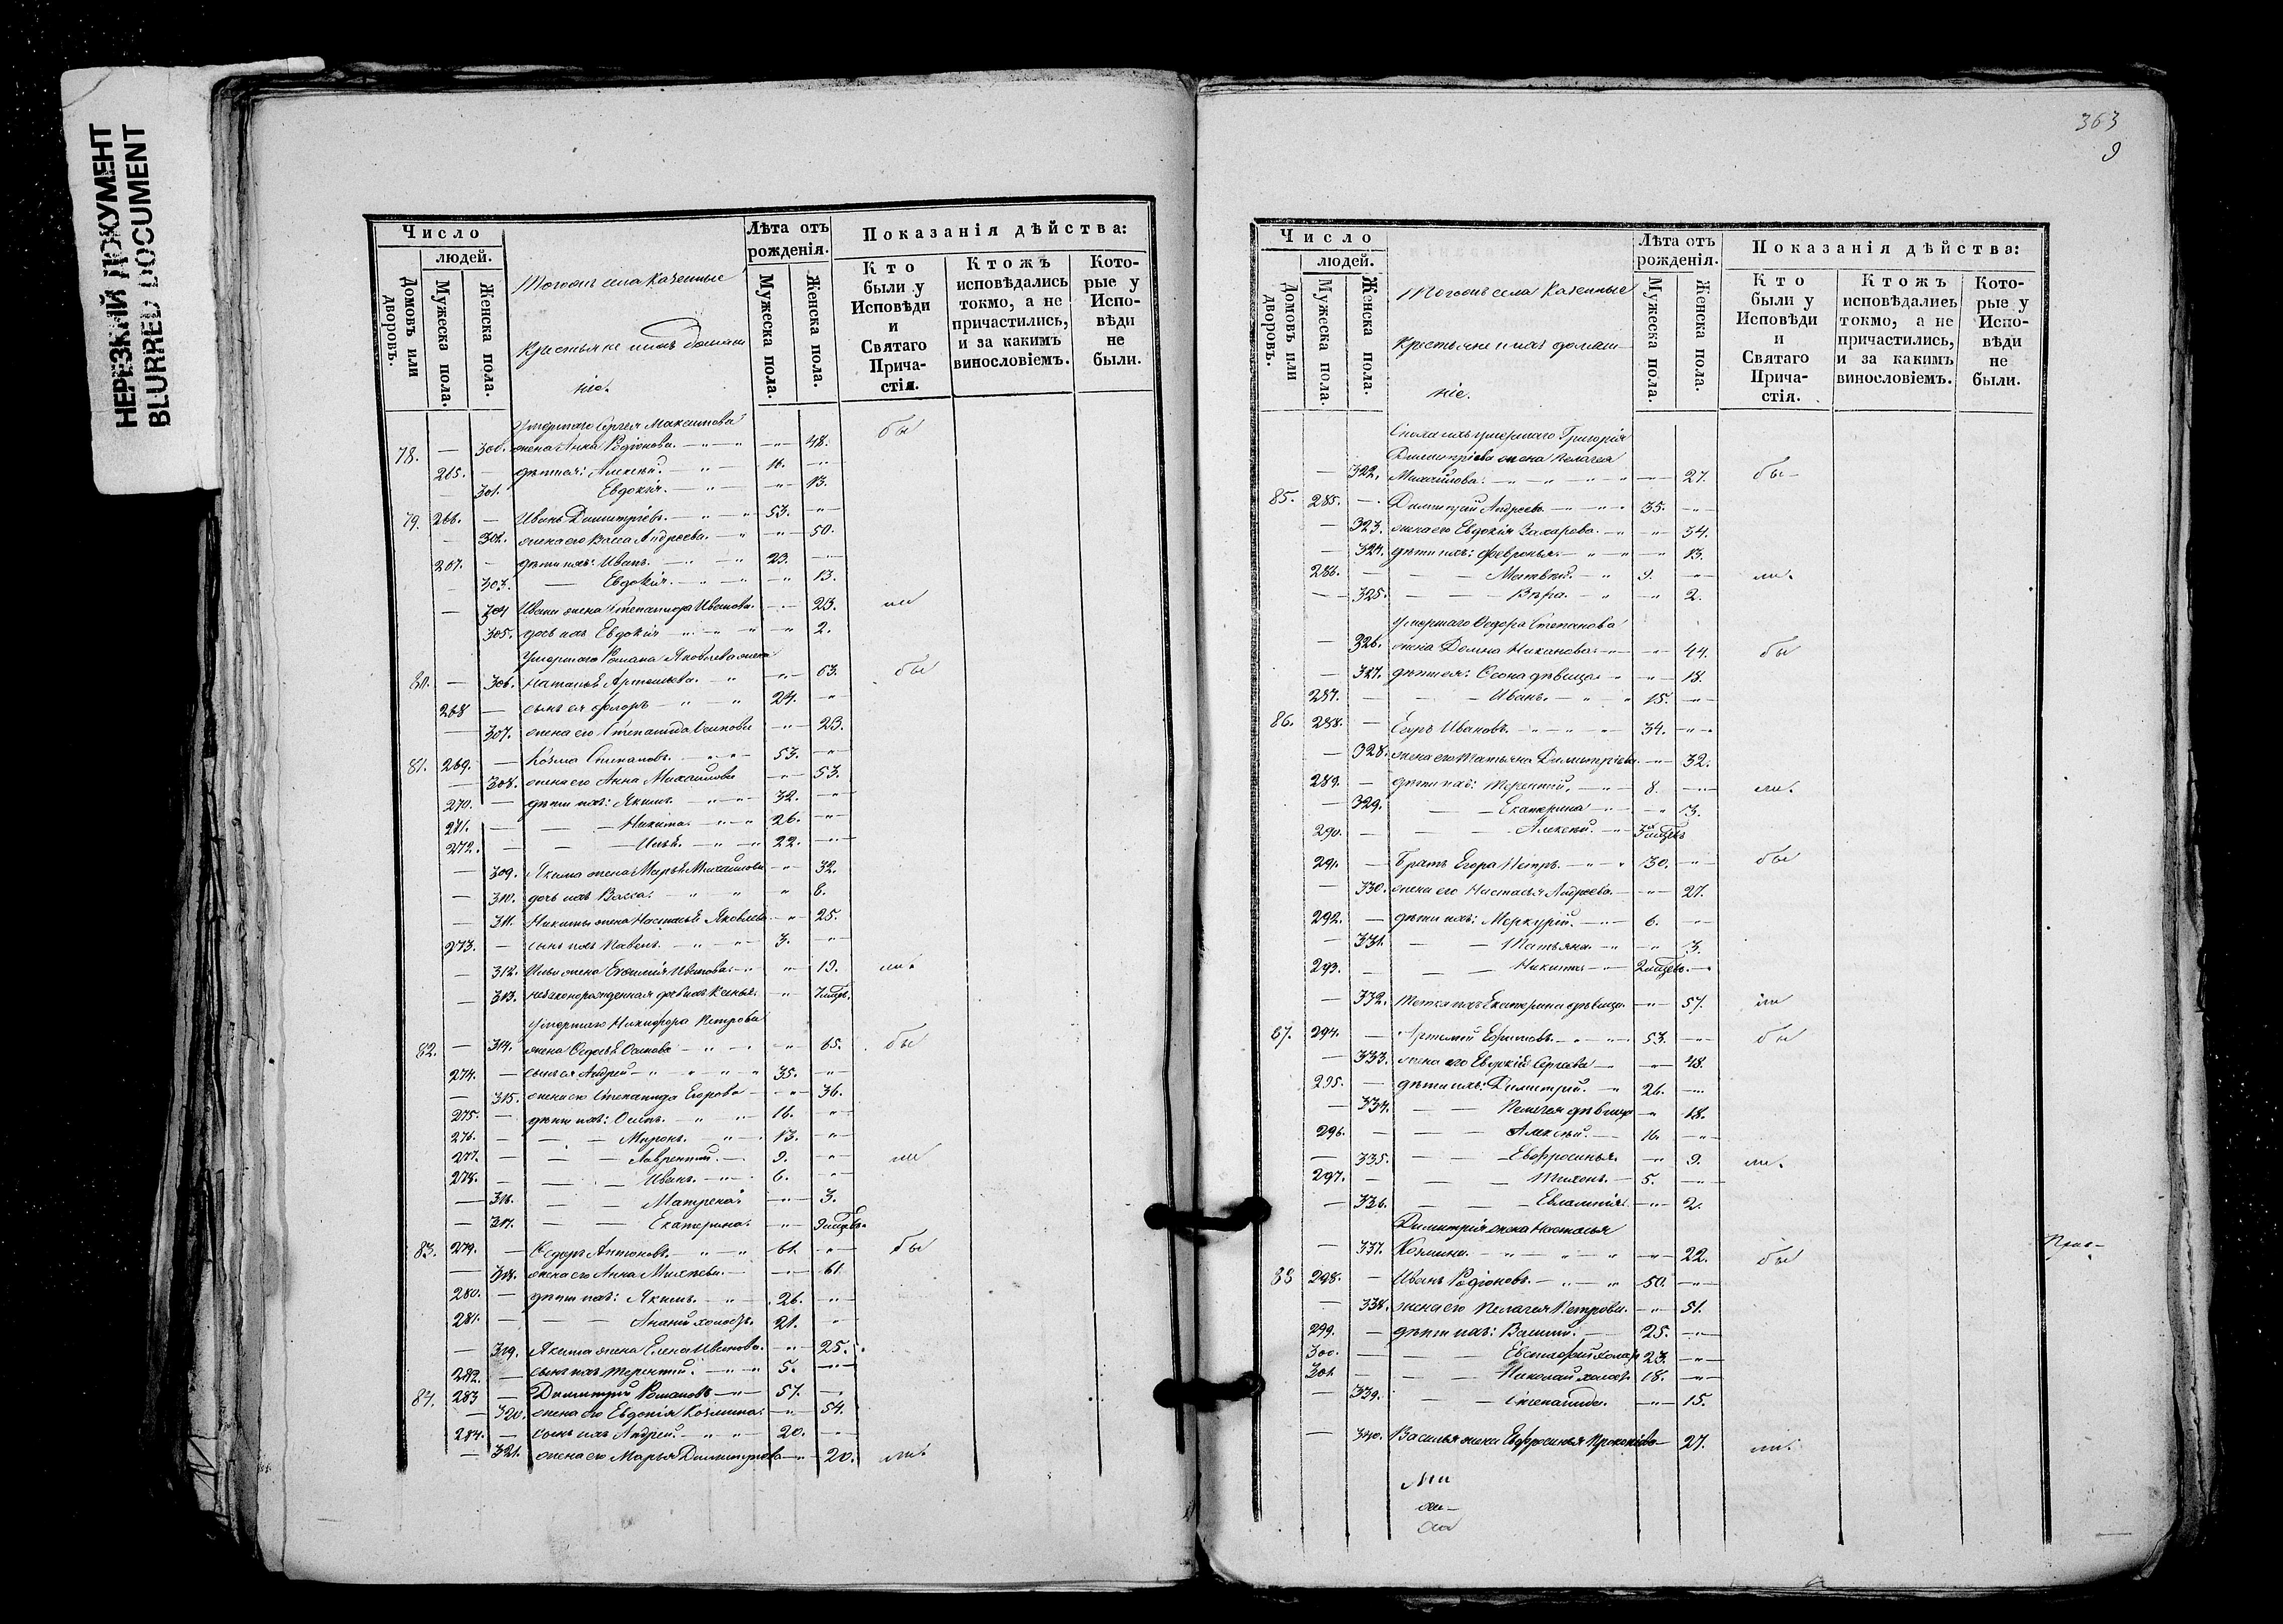 НЕРЕЗКИЙ ДОКУМЕНТ
BLURRED DOCUMENT
Число
людей.
Домовъ или дворовъ.
Мужеска пола.
Женска пола.
Тогожъ села Казенные
Крестьяне и ихъ домаш
ніе.
Лѣта отъ рожденія.
Мужеска пола.
Женска пола.
Показанія дѣйства:
Кто были у Исповѣди и Святаго Прича-стія.
Ктожъ исповѣдались токмо, а не причастились, и за какимъ винословіемъ.
Кото-рые у Испо-вѣди не были.
Умершаго Сергея Максимова
78. — 300. жена Анна Родіонова. — 48. бы
265. — дѣти ея: Алексѣй. — 16.
— 301. Евдокія. — 13.
79. 266. — Иванъ Димитріевъ. — 53.
— 302. жена его Васса Андреева. — 50.
267. — дѣти ихъ: Иванъ. — 23.
303. — Евдокія. — 13.
— 304 Ивана жена Степанида Иванова. — 23.
305. дочь ихъ Евдокія — 2.
Умершаго Романа Яковлева жена
80. — 306. Наталья Артемьева. — 63. бы
268 — сынъ ея Флоръ — 24.
— 307. жена его Степанида Осипова — 23.
81. 269. — Козма Степановъ. — 53.
— 308. жена его Анна Михайлова — 53.
270. — дѣти ихъ: Якимъ. — 32.
271. — Никита. — 26.
272. — Илья. — 22.
— 309. Якима жена Марья Михайлова — 32.
— 310. дочь ихъ Васса. — 8.
— 311. Никиты жена Настасья Яковлева — 25.
273. — сынъ ихъ Павелъ. — 3.
— 312. Ильи жена Евфимія Иванова. — 19.
— 313.
Умершаго Никифора Петрова
82. — 314. жена Федосья Осипова — 65. бы
274. — сынъ ея Андрей — 35.
— 315. жена его Степанида Егорова — 36.
275. — дѣти ихъ: Осипъ. — 16.
276. — Миронъ. — 13.
277. — Лаврентій. — 9.
278. — Иванъ. — 6.
— 316. — Матрена — 3.
— 317. — Екатерина. —
83. 279. — Ѳедоръ Антоновъ. — 61. бы
— 318. жена его Анна — 61
280. — дѣти ихъ: Якимъ. — 26.
281. — Ананій холостъ. 21.
— 319. Якима жена Елена Иванова. — 25.
282. — сынъ ихъ Терентій. — 5.
84. 283 — Димитрій Романовъ — 57.
— 320. жена его Евдокія Козмина. — 54.
284. — сынъ ихъ Андрей. — 20.
— 321. жена его Марья Димитріева — 20.
363
9
Число
людей.
Домовъ или дворовъ.
Мужеска пола.
Женска пола.
Тогожъ села Казенные
Крестьяне и ихъ домаш
ніе.
Лѣта отъ рожденія.
Мужеска пола.
Женска пола.
Показанія дѣйства:
Кто были у Исповѣди и Святаго Прича-стія.
Ктожъ исповѣдались токмо, а не причастились, и за какимъ винословіемъ.
Кото-рые у Испо-вѣди не были.
умершаго Григорія
Димитріева жена Пелагея
— 322. Михайлова. — 27. бы
85. 285. — Димитрій Андреевъ. — 35.
— 323. жена его Евдокія Захарова. — 34.
— 324. дѣти ихъ: Февронья. — 13.
286. — Матвѣй. — 9.
— 325. — Вѣра. — 2.
Умершаго Ѳедора Степанова
— 326. жена Домна Никанова. — 44. бы
— 327. дѣти ея: дѣвица — 18.
287. — Иванъ. — 15.
86. 288. — Егоръ Ивановъ. — 34.
— 328. жена его Татьяна Димитріева. — 32.
289. — дѣти ихъ: Терентій. — 8.
— 329. — Екатерина — 3.
290. — Алексѣй. —
291. — Братъ Егора Петръ. — 30. бы
— 330. жена его Настасья Андреева. — 27.
292. — дѣти ихъ: Меркурій. — 6.
— 331. — Татьяна. — 3.
293. — Никита —
— 332. Тетка ихъ Екатерина дѣвица. — 57.
87. 294. — Артемій Ефимовъ. — 53. бы
— 333. жена его Евдокія Сергѣева — 48.
295. — дѣти ихъ: Димитрій. — 26.
— 334. — Пелагея дѣвица — 18.
296. — Алексѣй. — 16.
— 335. — Евфросинья. — 9.
297. — Тихонъ. — 5.
— 336. — Евлампія. — 2.
Димитрія жена Настасья
— 337. Козмина. — 22. бы
88 298. — Иванъ Родіоновъ. — 50.
— 338. жена его Пелагея Петрова. — 51.
299. — дѣти ихъ: Василій. — 25.
300. — Евстафій холос 23.
301. — Николай холос. 18.
— 339. — Степанида. — 15.
— 340. Василья жена Евфросинья Прокопіева — 27.